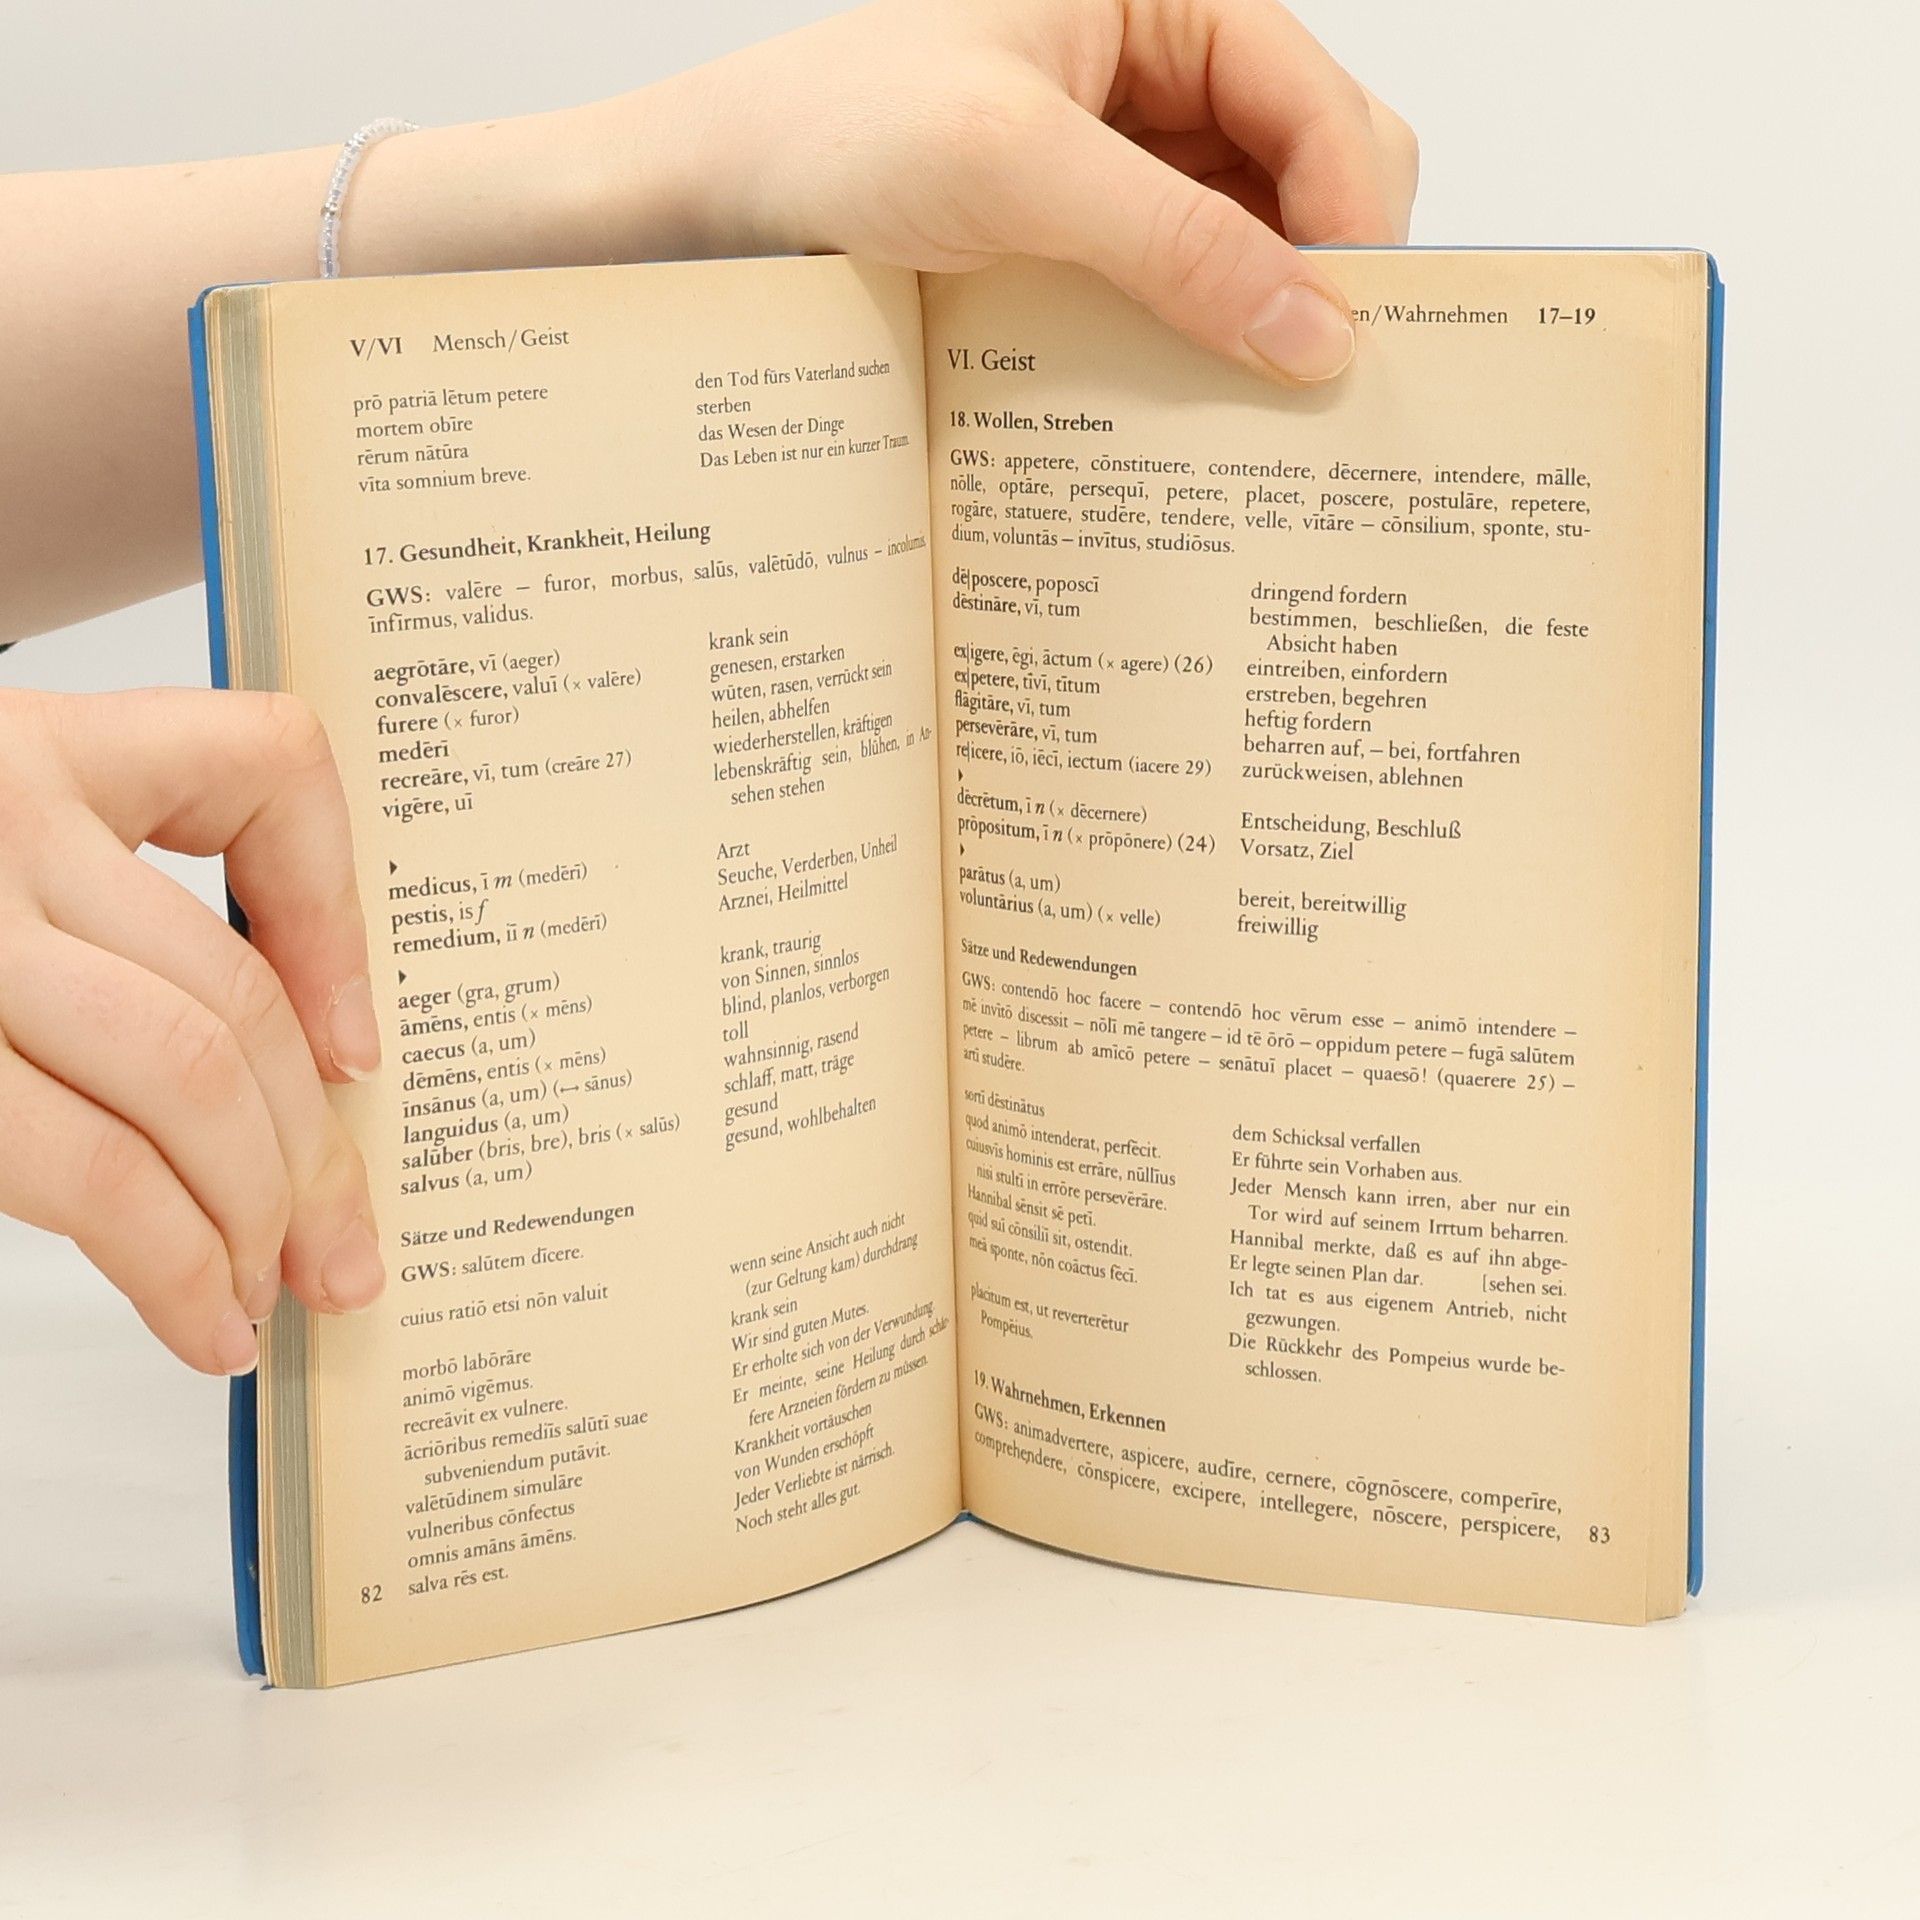 V/VI Mensch/Geist
prō patriā lētum petere den Tod fürs Vaterland suchen
mortem obīre sterben
rērum nātūra das Wesen der Dinge
vīta somnium breve. Das Leben ist nur ein kurzer Traum.
17. Gesundheit, Krankheit, Heilung
GWS: valēre – furor, morbus, salūs, valētūdō, vulnus – incolumis,
īnfīrmus, validus.
aegrōtāre, vī (aeger) krank sein
convalēscere, valuī (× valēre) genesen, erstarken
furere (× furor) wüten, rasen, verrückt sein
medērī heilen, abhelfen
recreāre, vī, tum (creāre 27) wiederherstellen, kräftigen
vigēre, uī lebenskräftig sein, blühen, in An-
sehen stehen
medicus, ī m (medērī) Arzt
pestis, is f Seuche, Verderben, Unheil
remedium, iī n (medērī) Arznei, Heilmittel
aeger (gra, grum) krank, traurig
āmēns, entis (× mēns) von Sinnen, sinnlos
caecus (a, um) blind, planlos, verborgen
dēmēns, entis (× mēns) toll
īnsānus (a, um) (↔ sānus) wahnsinnig, rasend
languidus (a, um) schlaff, matt, träge
salūber (bris, bre), bris (× salūs) gesund
salvus (a, um) gesund, wohlbehalten
Sätze und Redewendungen
GWS: salūtem dīcere.
cuius ratiō etsi nōn valuit wenn seine Ansicht auch nicht
(zur Geltung kam) durchdrang
morbō labōrāre krank sein
animō vigēmus. Wir sind guten Mutes.
recreāvit ex vulnere. Er erholte sich von der Verwundung.
ācriōribus remediīs salūtī suae Er meinte, seine Heilung durch schär-
subveniendum putāvit. fere Arzneien fördern zu müssen.
valētūdinem simulāre Krankheit vortäuschen
vulneribus cōnfectus von Wunden erschöpft
omnis amāns āmēns. Jeder Verliebte ist närrisch.
salva rēs est. Noch steht alles gut.
82
en/Wahrnehmen 17–19
VI. Geist
18. Wollen, Streben
GWS: appetere, cōnstituere, contendere, dēcernere, intendere, mālle,
nōlle, optāre, persequī, petere, placet, poscere, postulāre, repetere,
rogāre, statuere, studēre, tendere, velle, vītāre – cōnsilium, sponte, stu-
dium, voluntās – invītus, studiōsus.
dē|poscere, poposcī dringend fordern
dēstināre, vī, tum bestimmen, beschließen, die feste
Absicht haben
ex|igere, ēgi, āctum (× agere) (26) eintreiben, einfordern
ex|petere, tīvī, tītum erstreben, begehren
flāgitāre, vī, tum heftig fordern
persevērāre, vī, tum beharren auf, – bei, fortfahren
re|icere, iō, iēcī, iectum (iacere 29) zurückweisen, ablehnen
dēcrētum, ī n (× dēcernere) Entscheidung, Beschluß
prōpositum, ī n (× prōpōnere) (24) Vorsatz, Ziel
parātus (a, um) bereit, bereitwillig
voluntārius (a, um) (× velle) freiwillig
Sätze und Redewendungen
GWS: contendō hoc facere – contendō hoc vērum esse – animō intendere –
mē invītō discessit – nōlī mē tangere – id tē ōrō – oppidum petere – fugā salūtem
petere – librum ab amīcō petere – senātuī placet – quaesō! (quaerere 25) –
artī studēre.
sortī dēstinātus dem Schicksal verfallen
quod animō intenderat, perfēcit. Er führte sein Vorhaben aus.
cuiusvīs hominis est errāre, nūllīus Jeder Mensch kann irren, aber nur ein
nisi stultī in errōre persevērāre. Tor wird auf seinem Irrtum beharren.
Hannibal sēnsit sē petī. Hannibal merkte, daß es auf ihn abge-
quid suī cōnsiliī sit, ostendit. Er legte seinen Plan dar. [sehen sei.
meā sponte, nōn coāctus fēcī. Ich tat es aus eigenem Antrieb, nicht
gezwungen.
placitum est, ut reverterētur Die Rückkehr des Pompeius wurde be-
Pompēius. schlossen.
19. Wahrnehmen, Erkennen
GWS: animadvertere, aspicere, audīre, cernere, cōgnōscere, comperīre,
comprehendere, cōnspicere, excipere, intellegere, nōscere, perspicere,
83